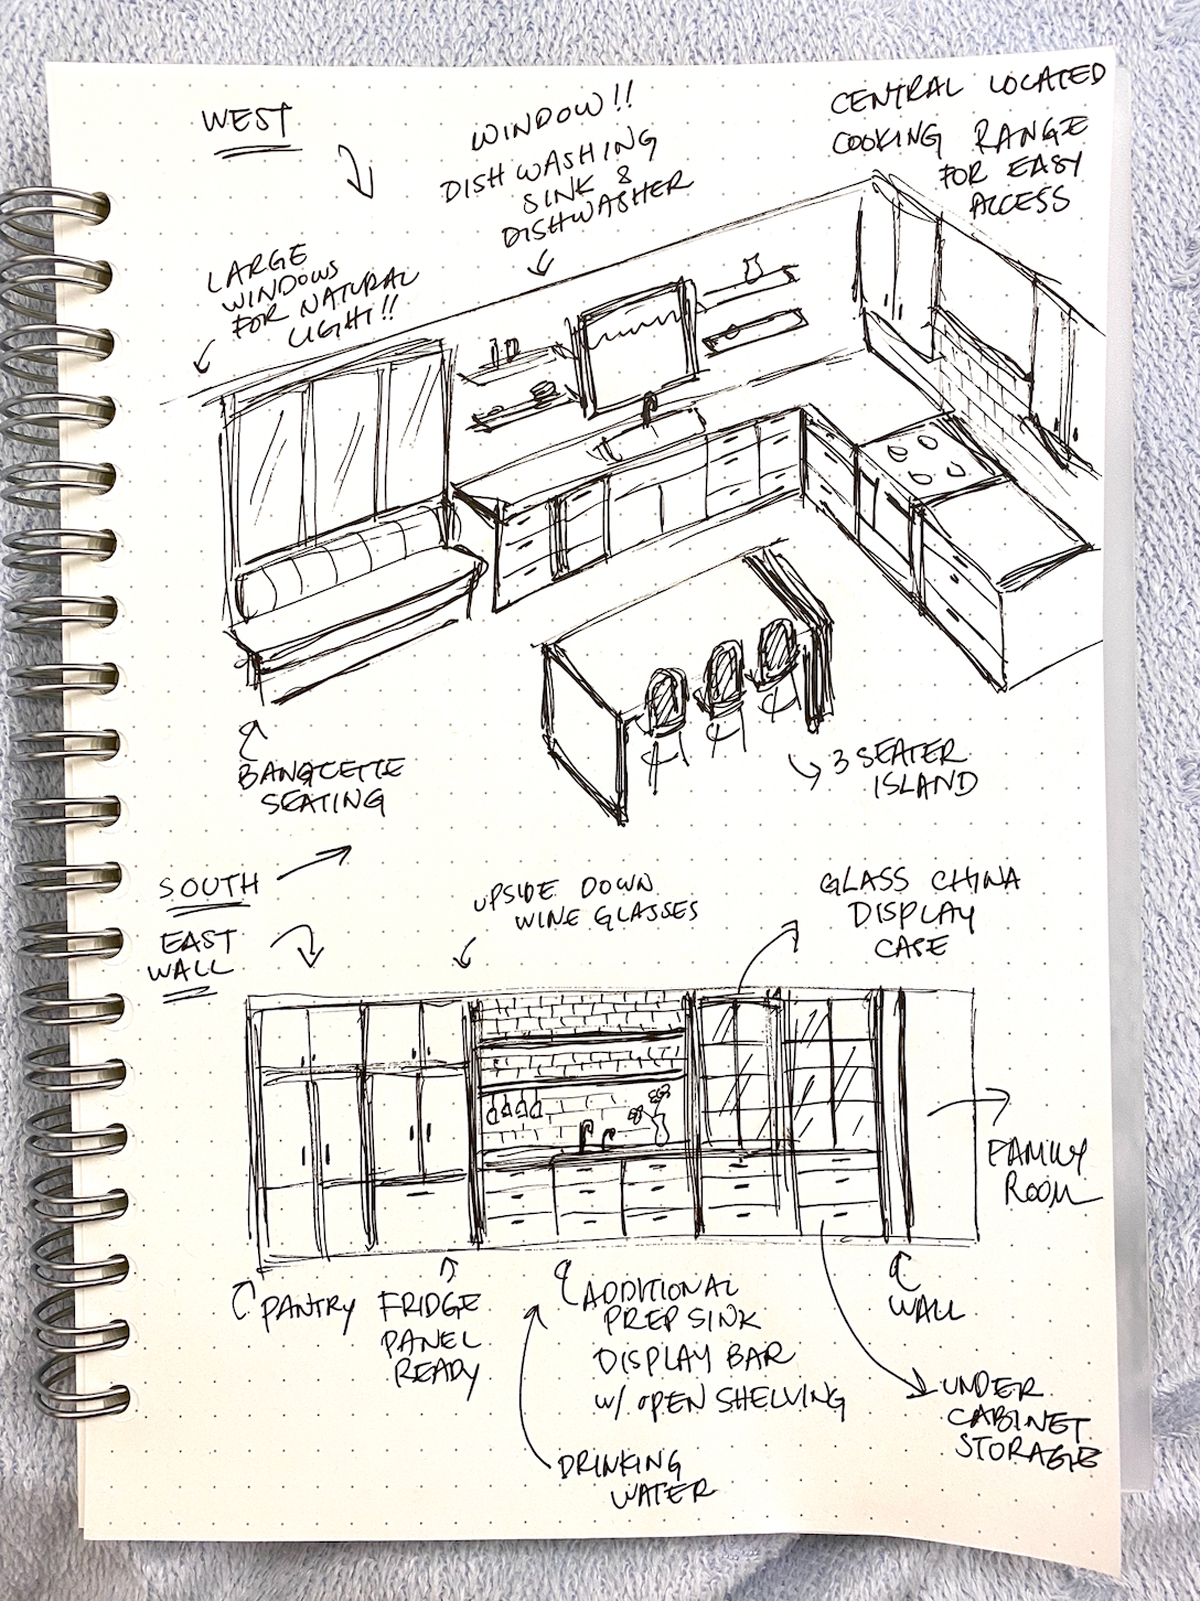 WEST
WINDOW!!
DISH WASHING
SINK &
DISHWASHER
CENTRAL LOCATED
COOKING RANGE
FOR EASY
ACCESS
LARGE
WINDOWS
FOR NATURAL
LIGHT!!
BANQCETTE
SEATING
3 SEATER
ISLAND
SOUTH
EAST
WALL
UPSIDE DOWN
WINE GLASSES
GLASS CHINA
DISPLAY
CASE
FAMILY
ROOM
PANTRY
FRIDGE
PANEL
READY
ADDITIONAL
PREP SINK
DISPLAY BAR
w/ OPEN SHELVING
WALL
UNDER
CABINET
STORAGE
DRINKING
WATER